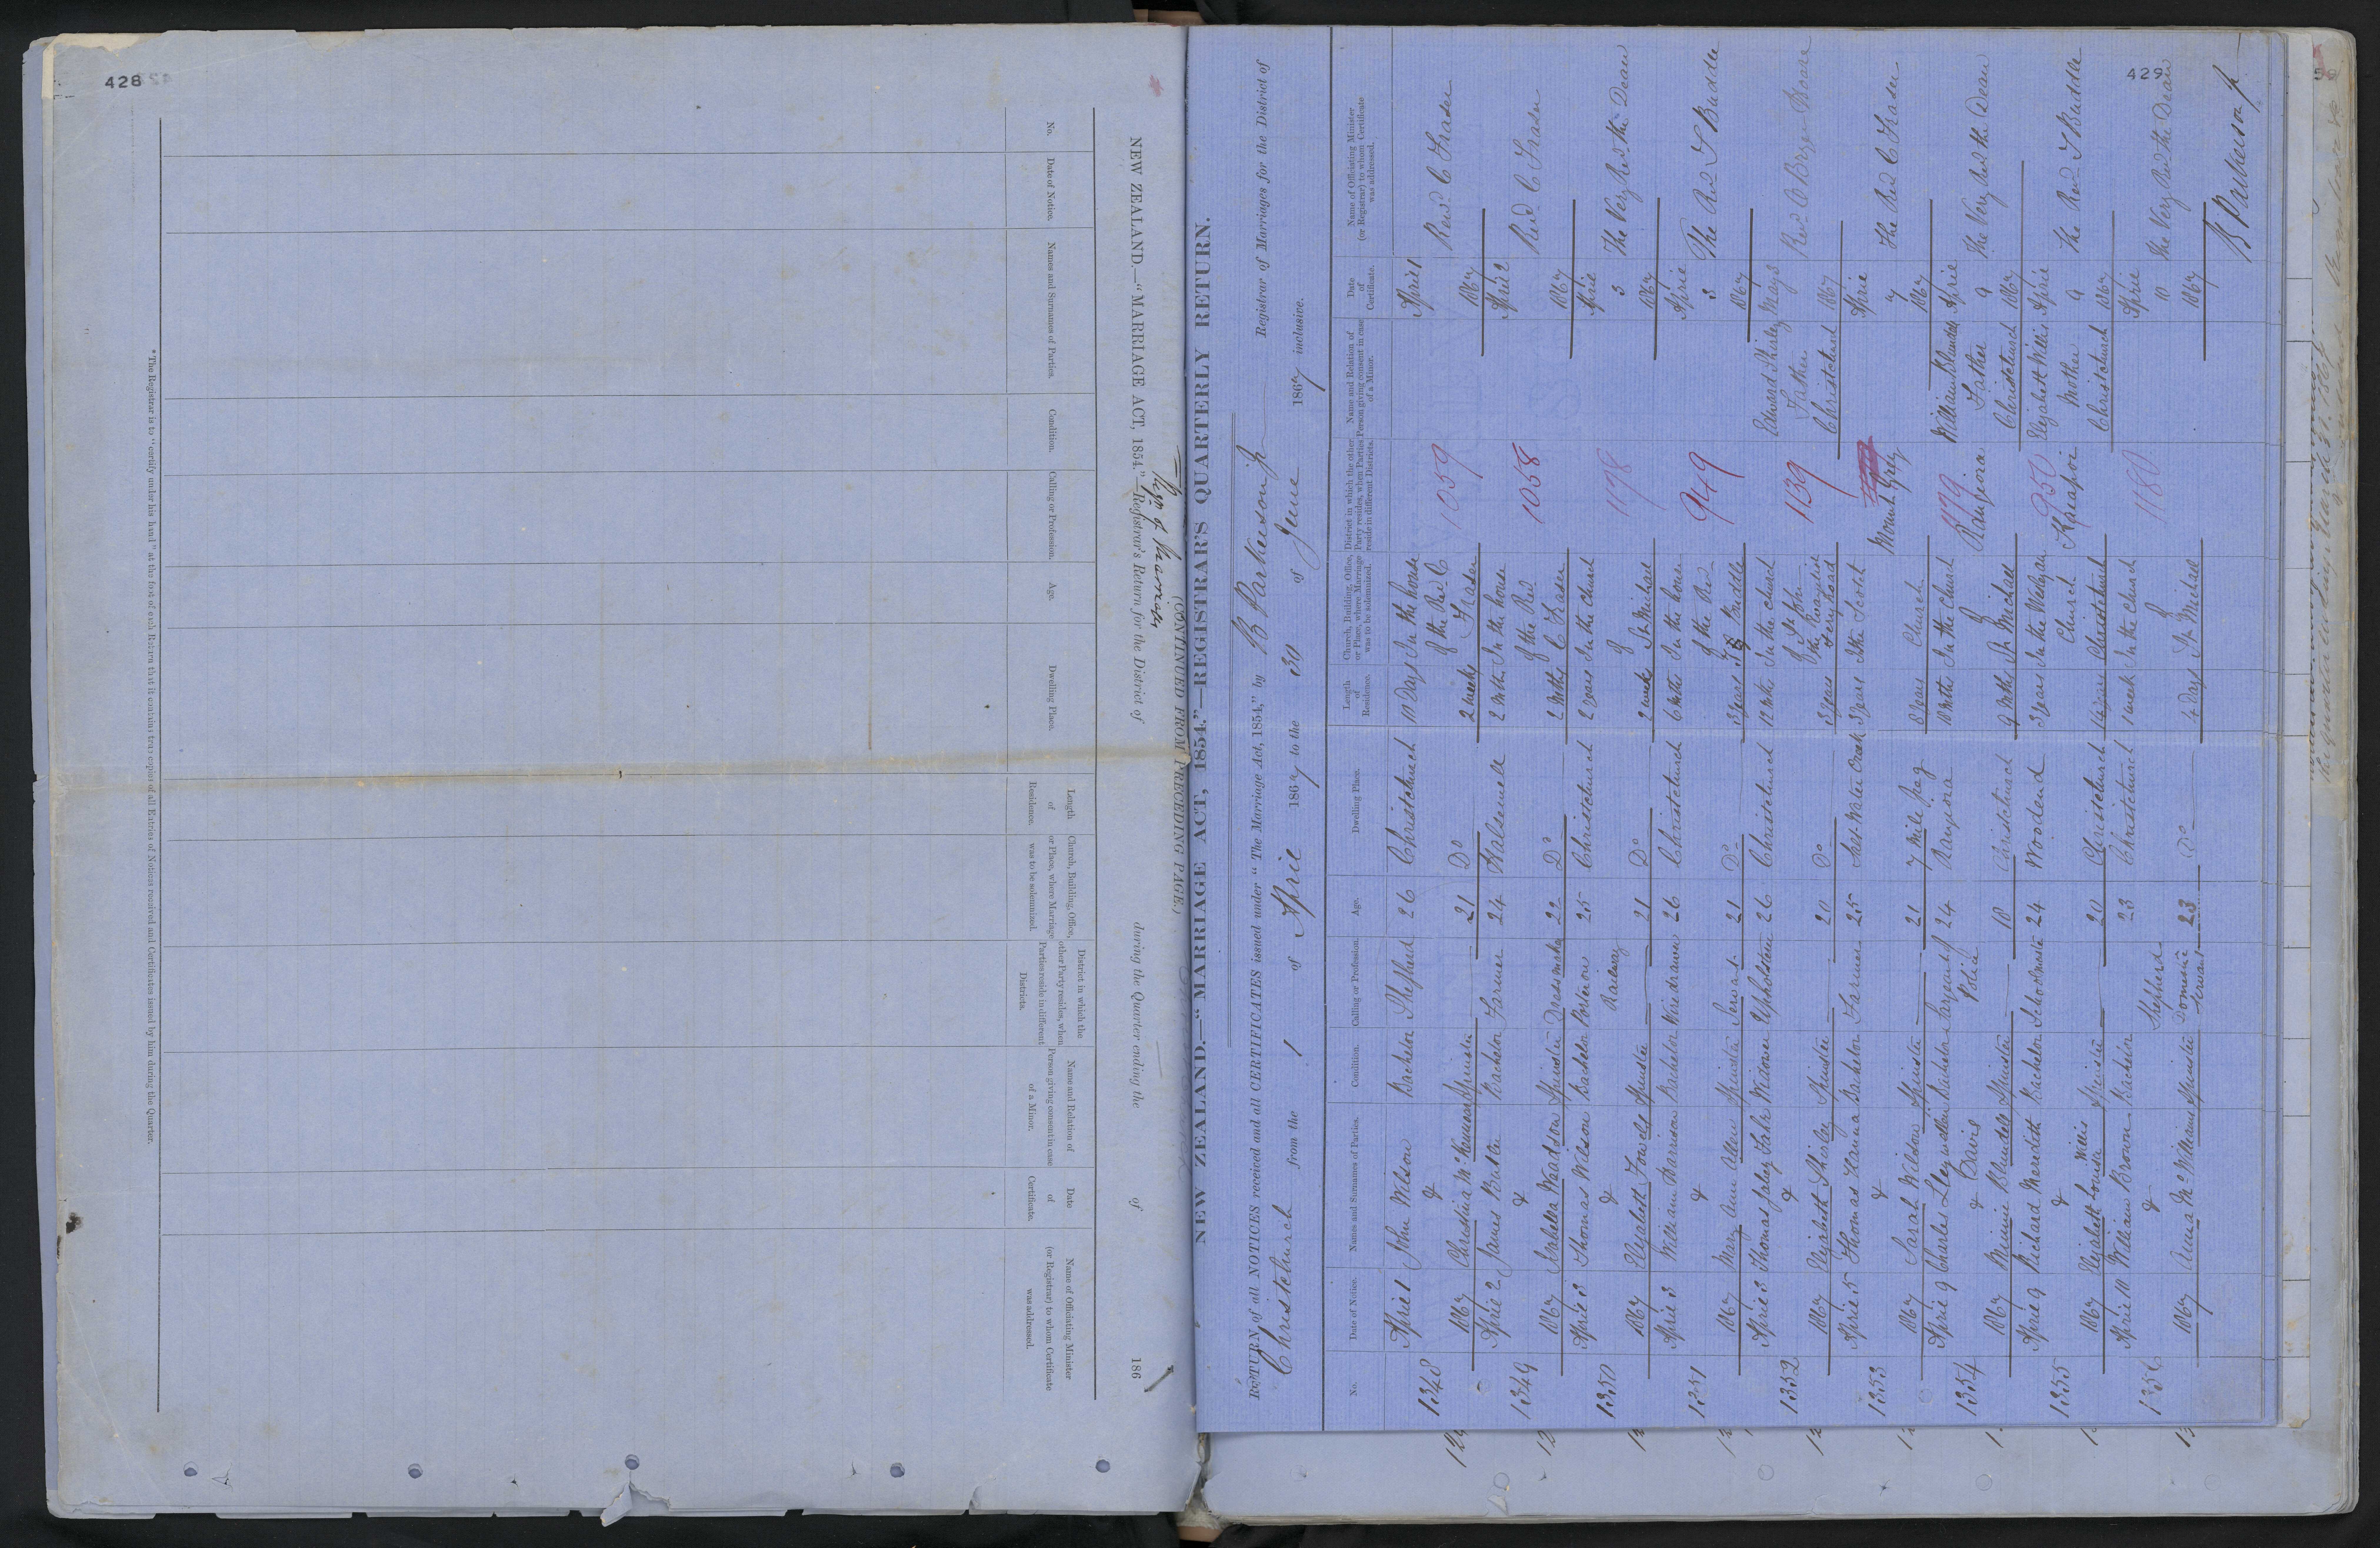 428
NEW ZEALAND.—"MARRIAGE ACT, 1854."—Registrar's Return for the District of during the Quarter ending the of 186
(CONTINUED FROM PRECEDING PAGE.)
No.
Date of Notice.
Names and Surnames of Parties.
Condition.
Calling or Profession.
Age.
Dwelling Place.
Length of Residence.
Church, Building, Office, or Place, where Marriage was to be solemnized.
District in which the other Party resides, when Parties reside in different Districts.
Name and Relation of Person giving consent in case of a Minor.
Date of Certificate.
Name of Officiating Minister (or Registrar) to whom Certificate was addressed.
*The Registrar is to "certify under his hand" at the foot of each Return that it contains true copies of all Entries of Notices received and Certificates issued by him during the Quarter.
429
NEW ZEALAND.—"MARRIAGE ACT, 1854."—REGISTRAR'S QUARTERLY RETURN.
RETURN of all NOTICES received and all CERTIFICATES issued under "The Marriage Act, 1854," by B Parkerson Jr Registrar of Marriages for the District of
Christchurch from the 1 of April 1867 to the 30 of June 1867 inclusive.
No.
Date of Notice.
Names and Surnames of Parties.
Condition.
Calling or Profession.
Age.
Dwelling Place.
Length of Residence.
Church, Building, Office, or Place, where Marriage was to be solemnized.
District in which the other Party resides, when Parties reside in different Districts.
Name and Relation of Person giving consent in case of a Minor.
Date of Certificate.
Name of Officiating Minister (or Registrar) to whom Certificate was addressed.
1348 April 1 John Wilson Bachelor Shepherd 26 Christchurch 10 Days In the house of the Rev C Fraser 1059 April 1 Revd C Fraser
&
1867 Christina Spinster — 21 Do 2 weeks 1867
1349 April 2 James Butler Bachelor Farmer 24 Halswell 2 Mths In the house of the Rev C Fraser 1058 April 2 Revd C Fraser
&
1867 Isabella Waddson Spinster Dressmaker 22 Do 2 Mths 1867
1350 April 3 Thomas Wilson Bachelor Porter on Railway 25 Christchurch 2 years In the Church of St Michael 1178 April 3 The Very Revd the Dean
&
1867 Elizabeth Fowels Spinster — 21 Do 2 weeks 1867
1351 April 3 William Harrison Bachelor Wiredrawer 26 Christchurch 6 Mths In the house of the Rev Buddle 949 April 3 The Rev J Buddle
&
1867 Mary Ann Allen Spinster Servant 21 Do 3 years 1867
1352 April 3 Thomas Widower Upholsterer 26 Christchurch 12 Mths In the Church of St John the Evangelist Ferry Road 1139 Edward Shirley Father Christchurch Revd
&
1867 Elizabeth Shirley Spinster — 20 Do 3 years 1867
1353 April 5 Thomas Hanna Bachelor Farmer 25 3 years In the Scotch Church Mount Grey April 7 The Rev C Fraser
&
1867 Sarah Wilson Spinster — 21 7 Mile Peg 8 years 1867
1354 April 9 Charles Llewellen Davis Bachelor Sargeant of Police 24 Rangiora 10 Mths In the Church of St Michael 1179 Rangiora William Blundell Father Christchurch April 9 The Very Revd the Dean
&
1867 Minnie Blundell Spinster — 18 Christchurch 9 Mths 1867
1355 April 9 Richard Meredith Bachelor Schoolmaster 24 Woodend 3 years In the Wesleyan Church Christchurch 950 Kaiapoi Elizabeth Willis Mother Christchurch April 9 The Rev J Buddle
&
1867 Elizabeth Louisa Willis Spinster — 20 Christchurch 1867
1356 April 10 William Brown Bachelor Shepherd 23 Christchurch 1 week In the Church of St Michael 1180 April 10 The Very Revd the Dean
&
1867 Anna McWilliams Spinster Domestic Servant 23 Do 4 Days 1867
B Parkerson Jr